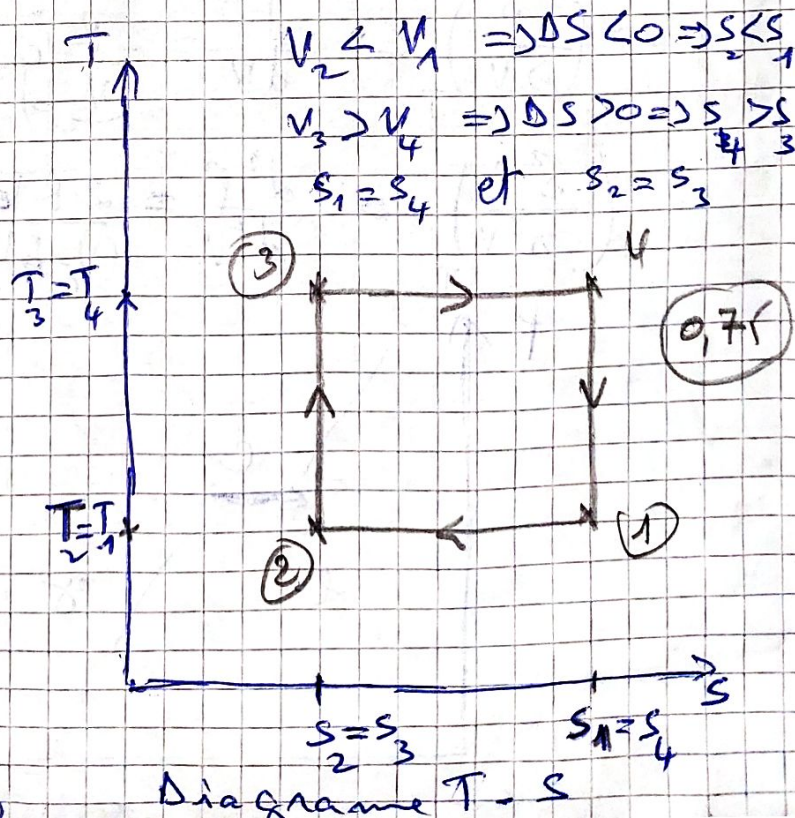 T
V₂ < V₁ => ΔS < 0 => S₂ < S₁
V₃ > V₄ => ΔS > 0 => S₄ > S₃
S₁ = S₄ et S₂ = S₃
3
4
T₃ = T₄
0,75
T₂ = T₁
1
2
S
S₂ = S₃
S₁ = S₄
Diagrame T - S